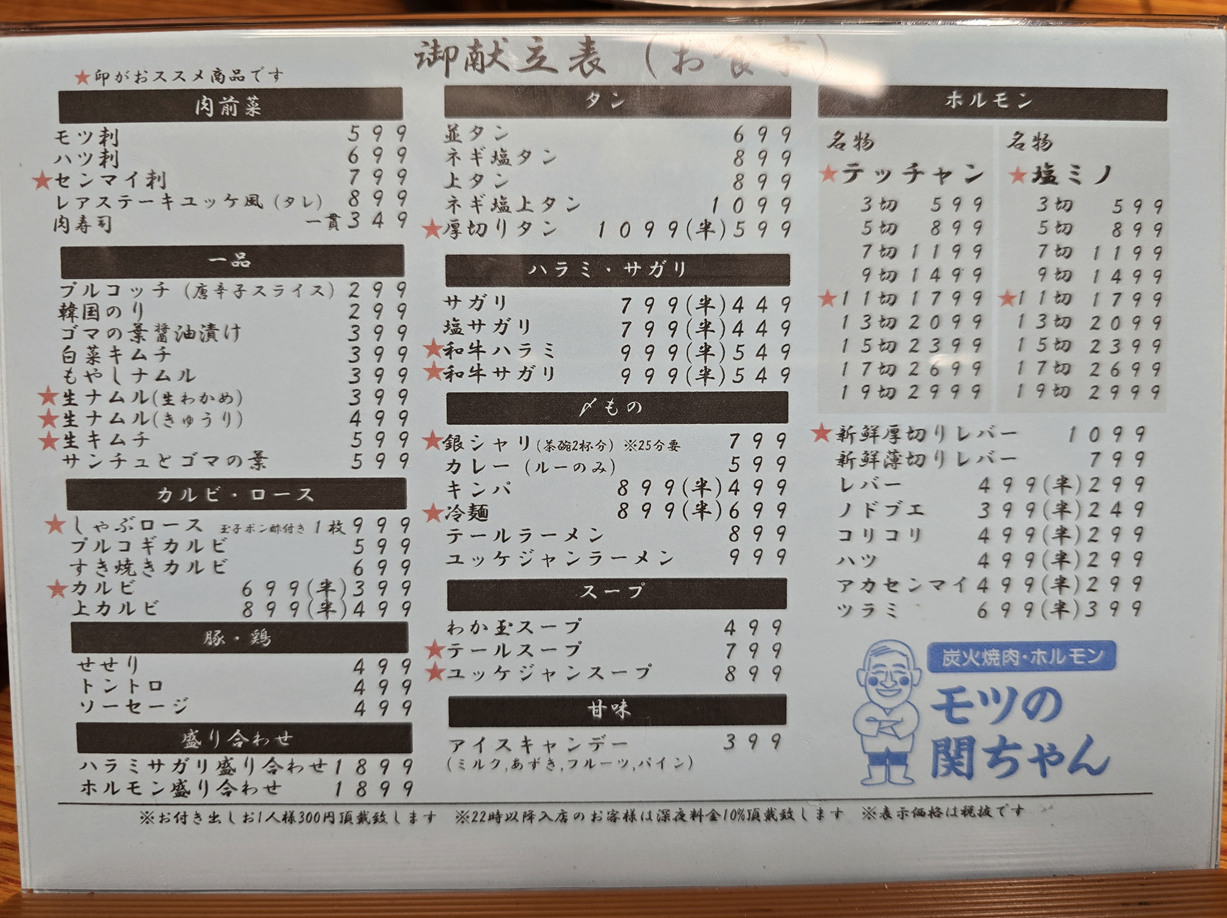 御献立表（お食事）
★印がおススメ商品です
肉前菜
モツ刺 599
ハツ刺 699
★センマイ刺 799
レアステーキユッケ風（タレ） 899
肉寿司 一貫349
一品
プルコッチ（唐辛子スライス） 299
韓国のり 299
ゴマの葉醤油漬け 399
白菜キムチ 399
もやしナムル 399
★生ナムル(生わかめ) 399
★生ナムル(きゅうり) 499
★生キムチ 599
サンチュとゴマの葉 599
カルビ・ロース
★しゃぶロース 玉子ポン酢付き 1枚999
プルコギカルビ 599
すき焼きカルビ 699
★カルビ 699(半)399
上カルビ 899(半)499
豚・鶏
せせり 499
トントロ 499
ソーセージ 499
盛り合わせ
ハラミサガリ盛り合わせ 1899
ホルモン盛り合わせ 1899
タン
並タン 699
ネギ塩タン 899
上タン 899
ネギ塩上タン 1099
★厚切りタン 1099(半)599
ハラミ・サガリ
サガリ 799(半)449
塩サガリ 799(半)449
★和牛ハラミ 999(半)549
★和牛サガリ 999(半)549
〆もの
★銀シャリ(茶碗2杯分) ※25分要 799
カレー（ルーのみ） 599
キンパ 899(半)499
★冷麺 899(半)699
テールラーメン 899
ユッケジャンラーメン 999
スープ
わか玉スープ 499
★テールスープ 799
★ユッケジャンスープ 899
甘味
アイスキャンデー 399
(ミルク,あずき,フルーツ,パイン)
ホルモン
名物
★テッチャン
3切 599
5切 899
7切 1199
9切 1499
★11切 1799
13切 2099
15切 2399
17切 2699
19切 2999
名物
★塩ミノ
3切 599
5切 899
7切 1199
9切 1499
★11切 1799
13切 2099
15切 2399
17切 2699
19切 2999
★新鮮厚切りレバー 1099
新鮮薄切りレバー 799
レバー 499(半)299
ノドブエ 399(半)249
コリコリ 499(半)299
ハツ 499(半)299
アカセンマイ 499(半)299
ツラミ 699(半)399
炭火焼肉・ホルモン
モツの
関ちゃん
※お付き出しお1人様300円頂戴致します ※22時以降入店のお客様は深夜料金10%頂戴致します ※表示価格は税抜です